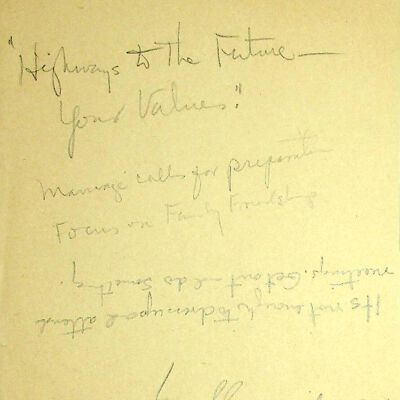 "Highways to the Future —
Your Values."
Marriage calls for preparation
Focus on Family Friendship
It's not enough to dress up and attend
meetings. Get out and do something.